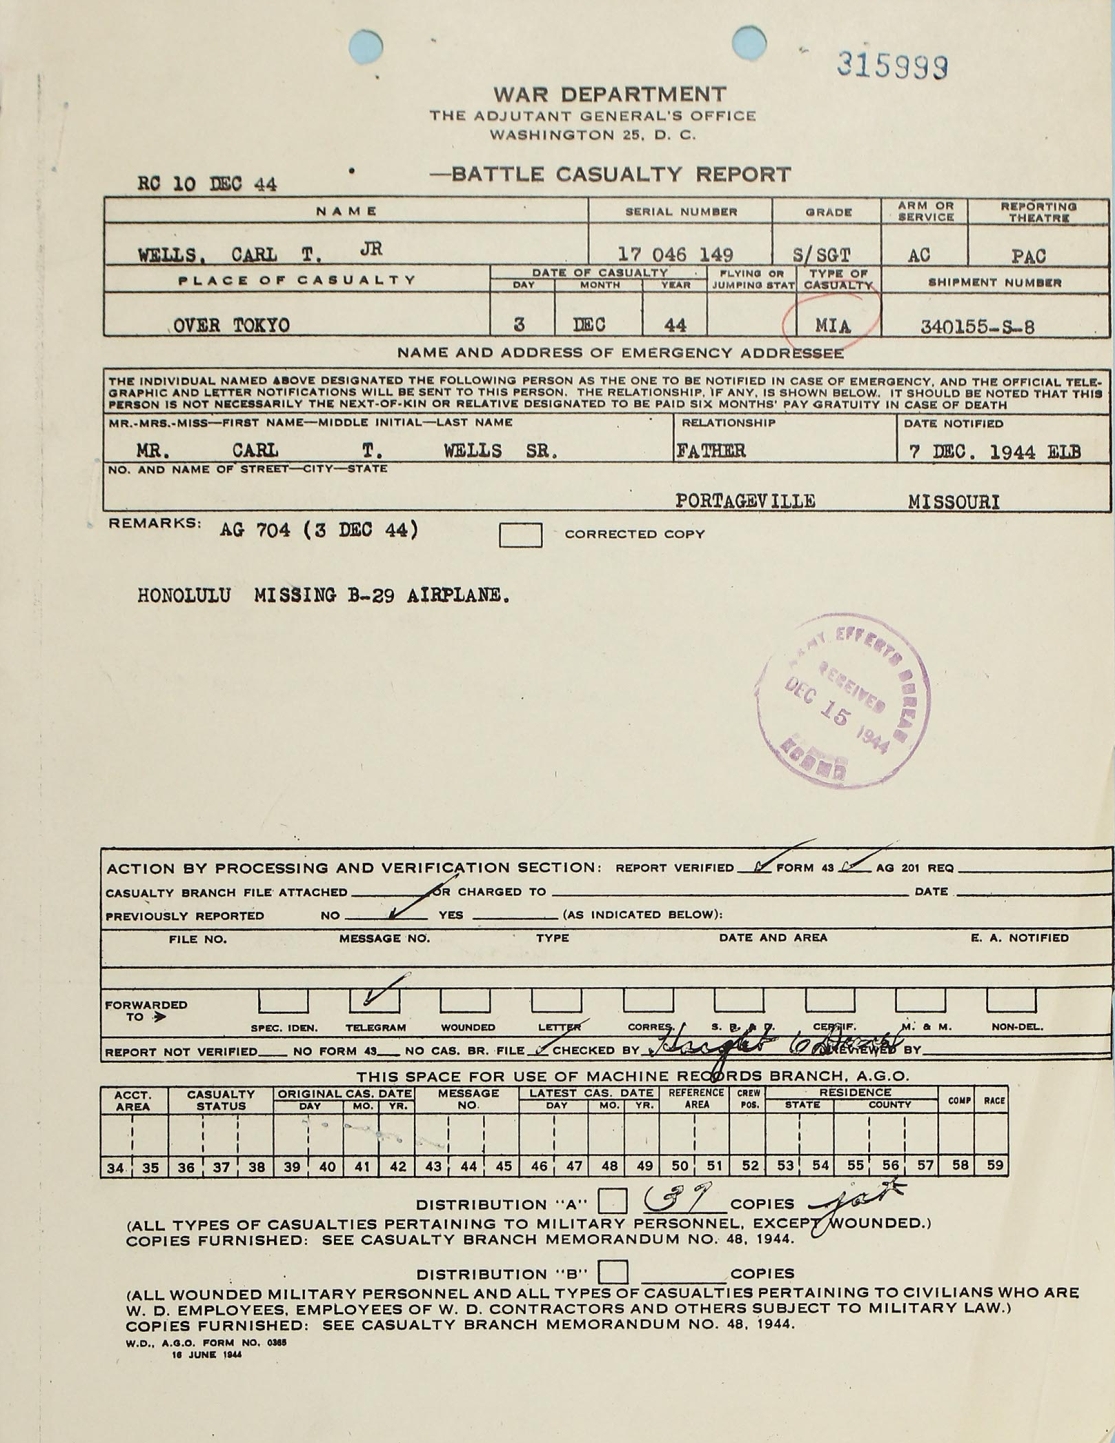 315999
WAR DEPARTMENT
THE ADJUTANT GENERAL'S OFFICE
WASHINGTON 25, D. C.
RC 10 DEC 44
—BATTLE CASUALTY REPORT
NAME SERIAL NUMBER GRADE ARM OR SERVICE REPORTING THEATRE
WELLS, CARL T. JR 17 046 149 S/SGT AC PAC
PLACE OF CASUALTY DATE OF CASUALTY DAY MONTH YEAR FLYING OR JUMPING STAT TYPE OF CASUALTY SHIPMENT NUMBER
OVER TOKYO 3 DEC 44 MIA 340155-S-8
NAME AND ADDRESS OF EMERGENCY ADDRESSEE
THE INDIVIDUAL NAMED ABOVE DESIGNATED THE FOLLOWING PERSON AS THE ONE TO BE NOTIFIED IN CASE OF EMERGENCY, AND THE OFFICIAL TELE-
GRAPHIC AND LETTER NOTIFICATIONS WILL BE SENT TO THIS PERSON. THE RELATIONSHIP, IF ANY, IS SHOWN BELOW. IT SHOULD BE NOTED THAT THIS
PERSON IS NOT NECESSARILY THE NEXT-OF-KIN OR RELATIVE DESIGNATED TO BE PAID SIX MONTHS' PAY GRATUITY IN CASE OF DEATH
MR.-MRS.-MISS—FIRST NAME—MIDDLE INITIAL—LAST NAME RELATIONSHIP DATE NOTIFIED
MR. CARL T. WELLS SR. FATHER 7 DEC. 1944 ELB
NO. AND NAME OF STREET—CITY—STATE
PORTAGEVILLE MISSOURI
REMARKS: AG 704 (3 DEC 44) CORRECTED COPY
HONOLULU MISSING B-29 AIRPLANE.
ARMY EFFECTS BUREAU
RECEIVED
DEC 15 1944
KCQMD
ACTION BY PROCESSING AND VERIFICATION SECTION: REPORT VERIFIED FORM 43 AG 201 REQ
CASUALTY BRANCH FILE ATTACHED OR CHARGED TO DATE
PREVIOUSLY REPORTED NO YES (AS INDICATED BELOW):
FILE NO. MESSAGE NO. TYPE DATE AND AREA E. A. NOTIFIED
FORWARDED TO
SPEC. IDEN. TELEGRAM WOUNDED LETTER CORRES. S. R. & D. CERTIF. M. & M. NON-DEL.
REPORT NOT VERIFIED NO FORM 43 NO CAS. BR. FILE CHECKED BY REVIEWED BY
THIS SPACE FOR USE OF MACHINE RECORDS BRANCH, A.G.O.
ACCT. AREA CASUALTY STATUS ORIGINAL CAS. DATE DAY MO. YR. MESSAGE NO. LATEST CAS. DATE DAY MO. YR. REFERENCE AREA CREW POS. RESIDENCE STATE COUNTY COMP RACE
34 35 36 37 38 39 40 41 42 43 44 45 46 47 48 49 50 51 52 53 54 55 56 57 58 59
DISTRIBUTION "A" 39 COPIES
(ALL TYPES OF CASUALTIES PERTAINING TO MILITARY PERSONNEL, EXCEPT WOUNDED.)
COPIES FURNISHED: SEE CASUALTY BRANCH MEMORANDUM NO. 48, 1944.
DISTRIBUTION "B" COPIES
(ALL WOUNDED MILITARY PERSONNEL AND ALL TYPES OF CASUALTIES PERTAINING TO CIVILIANS WHO ARE
W. D. EMPLOYEES, EMPLOYEES OF W. D. CONTRACTORS AND OTHERS SUBJECT TO MILITARY LAW.)
COPIES FURNISHED: SEE CASUALTY BRANCH MEMORANDUM NO. 48, 1944.
W.D., A.G.O. FORM NO. 0365
16 JUNE 1944